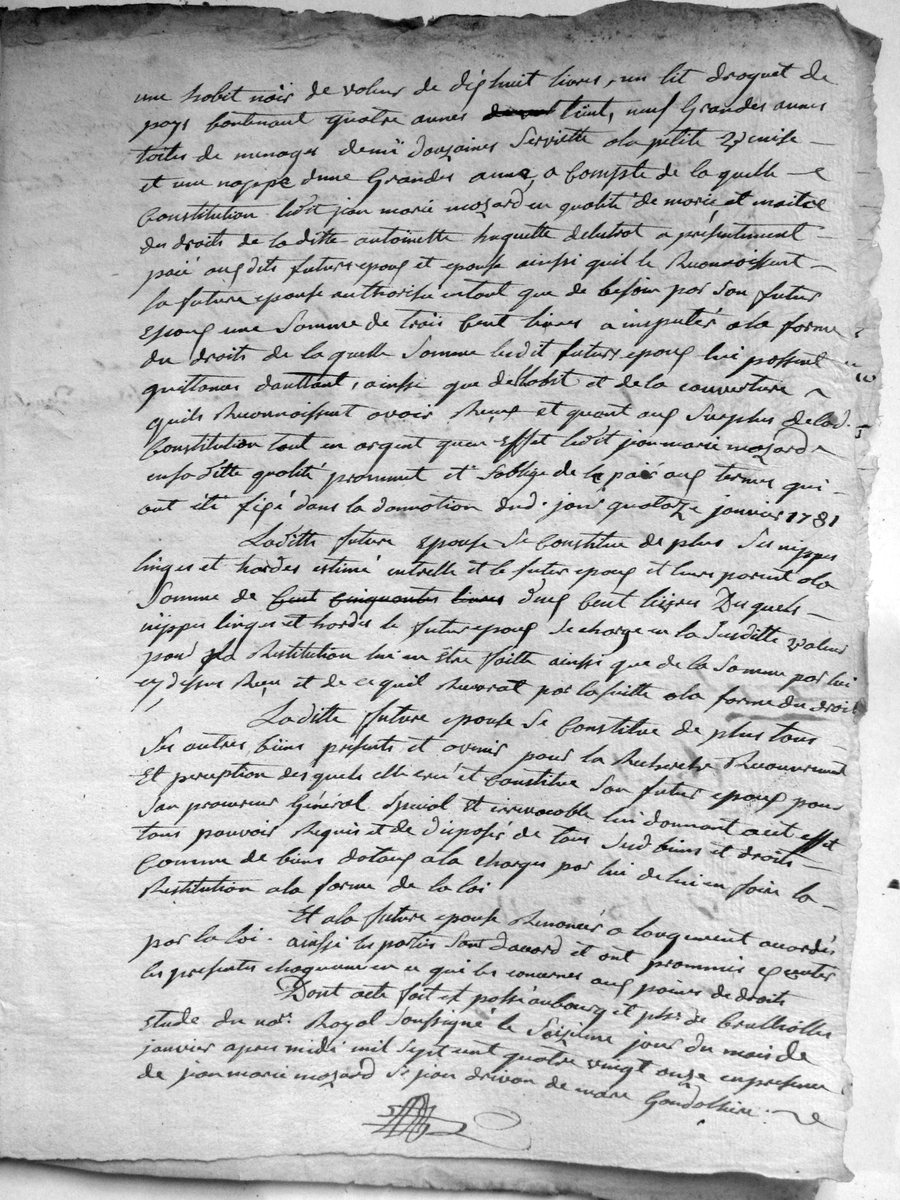 une habit noir de valeur de dix huit livres, un lit droguet de
pays Contenant quatre aunes teint, neuf Grandes aunes
toiles de menages demÿ douzaines Serviette a la petite Venise
et une nappe d'une Grandes aune, a Compte de la quelle
Constitution ledit jean marie mozard en qualité de marie et maitre
des droits de la ditte antoinette huguette delutrot a présentement
paié aux dits futurs epoux et epouse ainsi quil le Reconnoissent
la future epouse authorisée entant que de besoin par son futur
Epoux une Somme de trois Cent livres a imputér a la forme
du droits de la quelle Somme ledit futurs epoux lui passent
quittances dauttant, ainsi que de lhabit et de la couverture
quils Reconnaissent avoir Reçue et quant aux Surplus de lad.
Constitution tout en argent que en Effet ledit jean marie mozard
en sa ditte qualité prommet et Soblige de le paié aux termes qui
ont été fixé dans la donnotion dud. jour quatorze janvier 1781
Laditte future Epouse Se Constitue de plus Ses nippes
linges et hardes estimé entrelle et le futur epoux et leurs parent a la
Somme de Cent Cinquantes livres deux Cent livres Desquels
nippes linges et hardes le futur epoux Se charge en la Susditte valeur
pour la Restitution lui en Etre faitte ainsi que de la Somme par lui
cy dessus Reçu et de ce quil Recevrat par la suitte a la forme du droit
Laditte future epouse Se Constitue de plus tous
Ses autres biens présents et avenir pour la Recherche Recouvrement
Et perception des quels elle crée et Constitue Son futur epoux pour
Son procureur Général Special et irrevocable lui donnant a cet effet
tous pouvoir Requis et de disposér de tous Sesd biens et droits
Comme de biens dotaux a la charges par lui de lui en faire la
Restitution a la forme de la loi
Et a la future epouse Renoncér a laugment accordés
par la loi. ainsi les partis Sont daccord et ont prommis exécuter
les présentes chaqunne en ce qui les concernes aux peines de droits
Dont acte fait et passé au bourg et pssr de Brulliolles
Etude du nore. Royal Soussigné le Seizieme jour du mois de
janvier apres midi mil Sept cent quatre vingt onze en présence
de jean marie mozard Sr jean drivon de mare